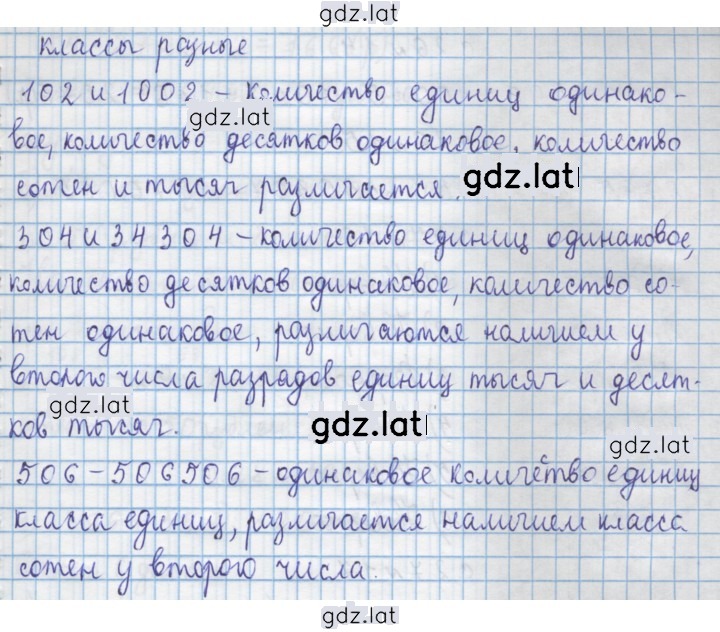 gdz.lat
классы разные
102 и 1002 - количество единиц одинако-
gdz.lat
вое, количество десятков одинаковое. количество
сотен и тысяч различается.
gdz.lat
304 и 34304 - количество единиц одинаковое,
количество десятков одинаковое, количество со-
тен одинаковое, различаются наличием у
второго числа разрядов единиц тысяч и десят-
gdz.lat
ков тысяч.
gdz.lat
gdz.lat
506 - 506506 - одинаковое количество единиц
класса единиц, различается наличием класса
сотен у второго числа.
gdz.lat
gdz.lat